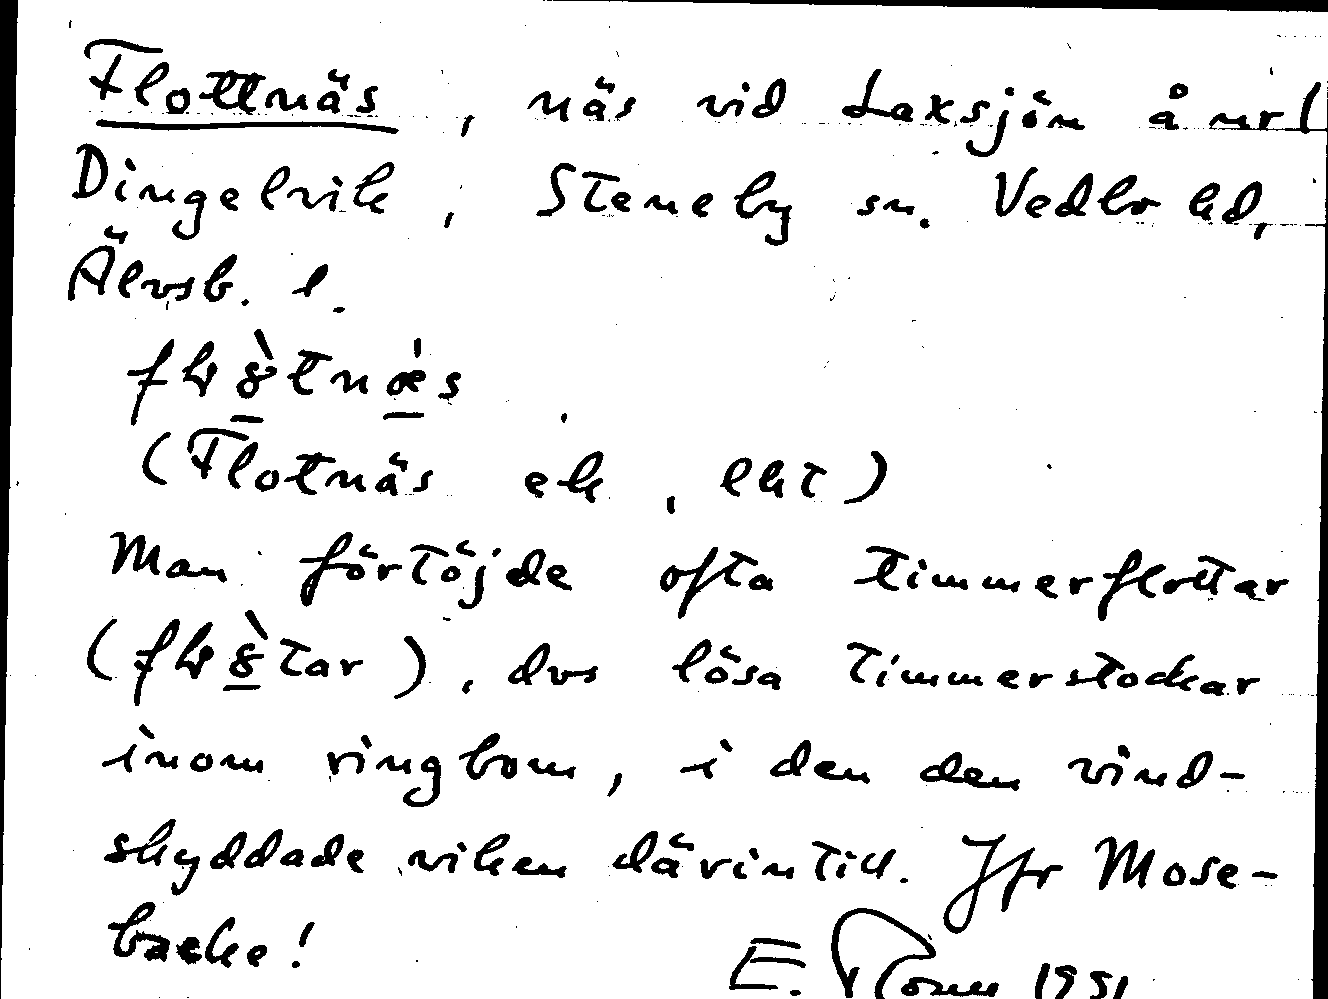 Flottnäs, näs vid Laxsjön å nr 1
Dingelvik, Steneby sn. Vedbo hd,
Älvsb. l.
(Flotnäs ek, ekt)
Man förtöjde ofta timmerflottar
dvs lösa timmerstockar
inom ringbom, i den den vind-
skyddade viken därintill. Jfr Mose-
backe!
E. 1951